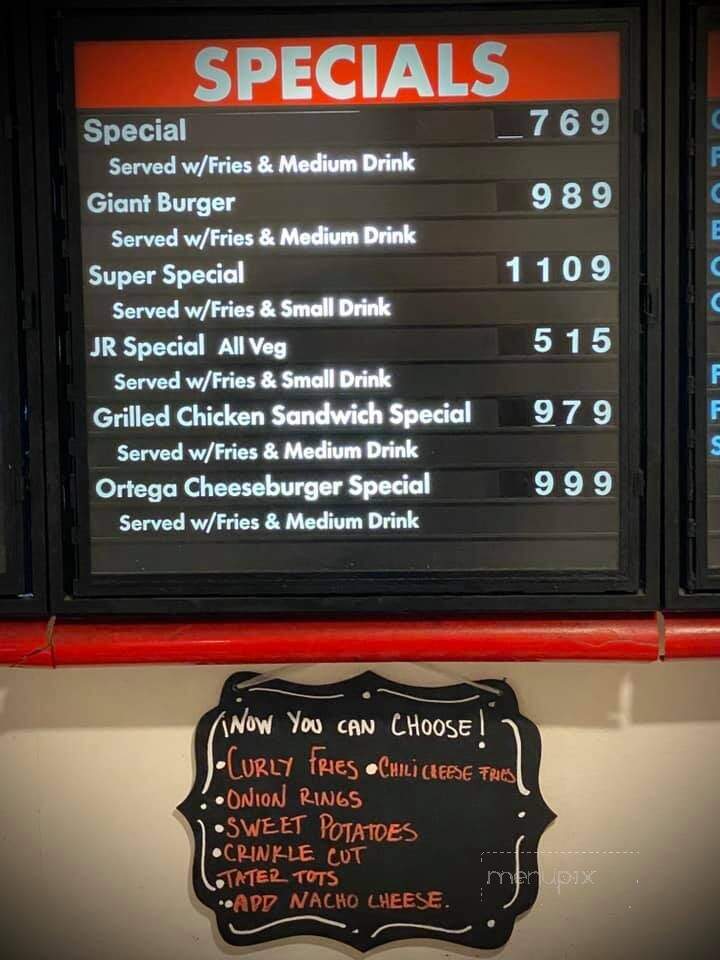 SPECIALS
Special 769
Served w/Fries & Medium Drink
Giant Burger 989
Served w/Fries & Medium Drink
Super Special 1109
Served w/Fries & Small Drink
JR Special All Veg 515
Served w/Fries & Small Drink
Grilled Chicken Sandwich Special 979
Served w/Fries & Medium Drink
Ortega Cheeseburger Special 999
Served w/Fries & Medium Drink
¡NOW YOU CAN CHOOSE!
•CURLY FRIES •CHILI CHEESE FRIES
•ONION RINGS
•SWEET POTATOES
•CRINKLE CUT
•TATER TOTS
•ADD NACHO CHEESE.
menupix